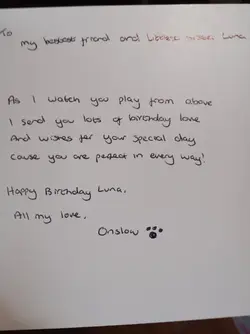 To
my bestest friend and Littlest sister Luna
As I watch you play from above
I send you lots of birthday love
And wishes for your special day
Cause you are perfect in every way!
Happy Birthday Luna.
All my love,
Onslow